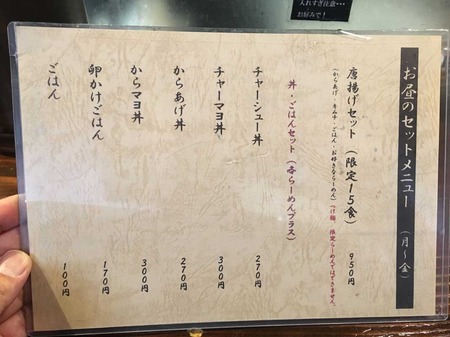 入れすぎ注意…
お好みで！
お昼のセットメニュー（月～金）
唐揚げセット（限定１５食） 950円
（からあげ・キムチ・ごはん・お好きならーめん）つけ麺、限定らーめんではできません。
丼・ごはんセット（各らーめんプラス）
チャーシュー丼 270円
チャーマヨ丼 300円
からあげ丼 270円
からマヨ丼 300円
卵かけごはん 170円
ごはん 100円